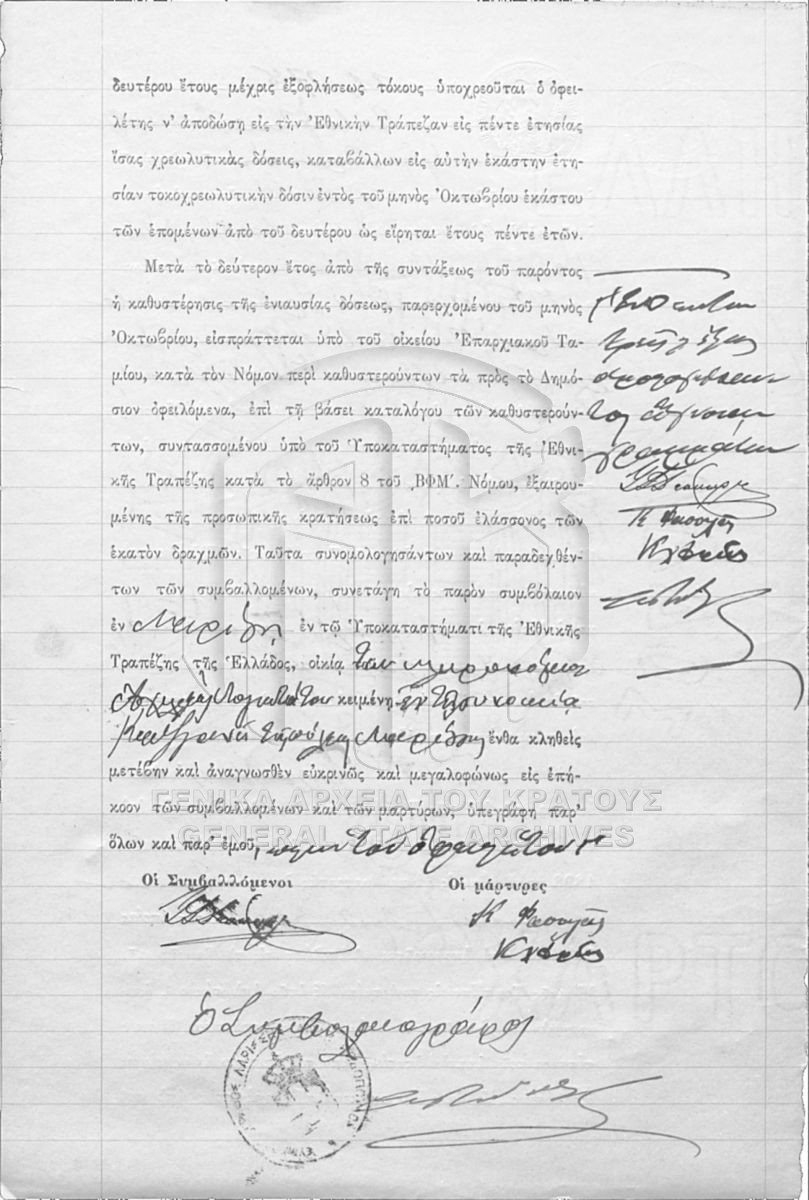 δευτέρου ἔτους μέχρις ἐξοφλήσεως τόκους ὑποχρεοῦται ὁ ὀφει-
λέτης ν' ἀποδώσῃ εἰς τὴν Ἐθνικὴν Τράπεζαν εἰς πέντε ἐτησίας
ἴσας χρεωλυτικὰς δόσεις, καταβάλλων εἰς αὐτὴν ἑκάστην ἐτη-
σίαν τοκοχρεωλυτικὴν δόσιν ἐντὸς τοῦ μηνὸς Ὀκτωβρίου ἑκάστου
τῶν ἑπομένων ἀπὸ τοῦ δευτέρου ὡς εἴρηται ἔτους πέντε ἐτῶν.
Μετὰ τὸ δεύτερον ἔτος ἀπὸ τῆς συντάξεως τοῦ παρόντος
ἡ καθυστέρησις τῆς ἐνιαυσίας δόσεως, παρερχομένου τοῦ μηνὸς
Ὀκτωβρίου, εἰσπράττεται ὑπὸ τοῦ οἰκείου Ἐπαρχιακοῦ Τα-
μίου, κατὰ τὸν Νόμον περὶ καθυστερούντων τὰ πρὸς τὸ Δημό-
σιον ὀφειλόμενα, ἐπὶ τῇ βάσει καταλόγου τῶν καθυστερούν-
των, συντασσομένου ὑπὸ τοῦ Ὑποκαταστήματος τῆς Ἐθνι-
κῆς Τραπέζης κατὰ τὸ ἄρθρον 8 τοῦ ͵ΒΦΜ΄. Νόμου, ἐξαιρου-
μένης τῆς προσωπικῆς κρατήσεως ἐπὶ ποσοῦ ἐλάσσονος τῶν
ἑκατὸν δραχμῶν. Ταῦτα συνομολογησάντων καὶ παραδεχθέν-
των τῶν συμβαλλομένων, συνετάγη τὸ παρὸν συμβόλαιον
ἐν Λαρίσῃ ἐν τῷ Ὑποκαταστήματι τῆς Ἐθνικῆς
Τραπέζης τῆς Ἑλλάδος, οἰκίᾳ τῶν κληρονόμων
κειμένῃ ἐν τῇ συνοικίᾳ
τῆς πόλεως Λαρίσης ἔνθα κληθεὶς
μετέβην καὶ ἀναγνωσθὲν εὐκρινῶς καὶ μεγαλοφώνως εἰς ἐπή-
κοον τῶν συμβαλλομένων καὶ τῶν μαρτύρων, ὑπεγράφη παρ'
ὅλων καὶ παρ' ἐμοῦ, πλὴν τοῦ ὀφειλέτου
Οἱ Συμβαλλόμενοι
Οἱ μάρτυρες
Ὁ Συμβολαιογράφος
ΓΕΝΙΚΑ ΑΡΧΕΙΑ ΤΟΥ ΚΡΑΤΟΥΣ
GENERAL STATE ARCHIVES